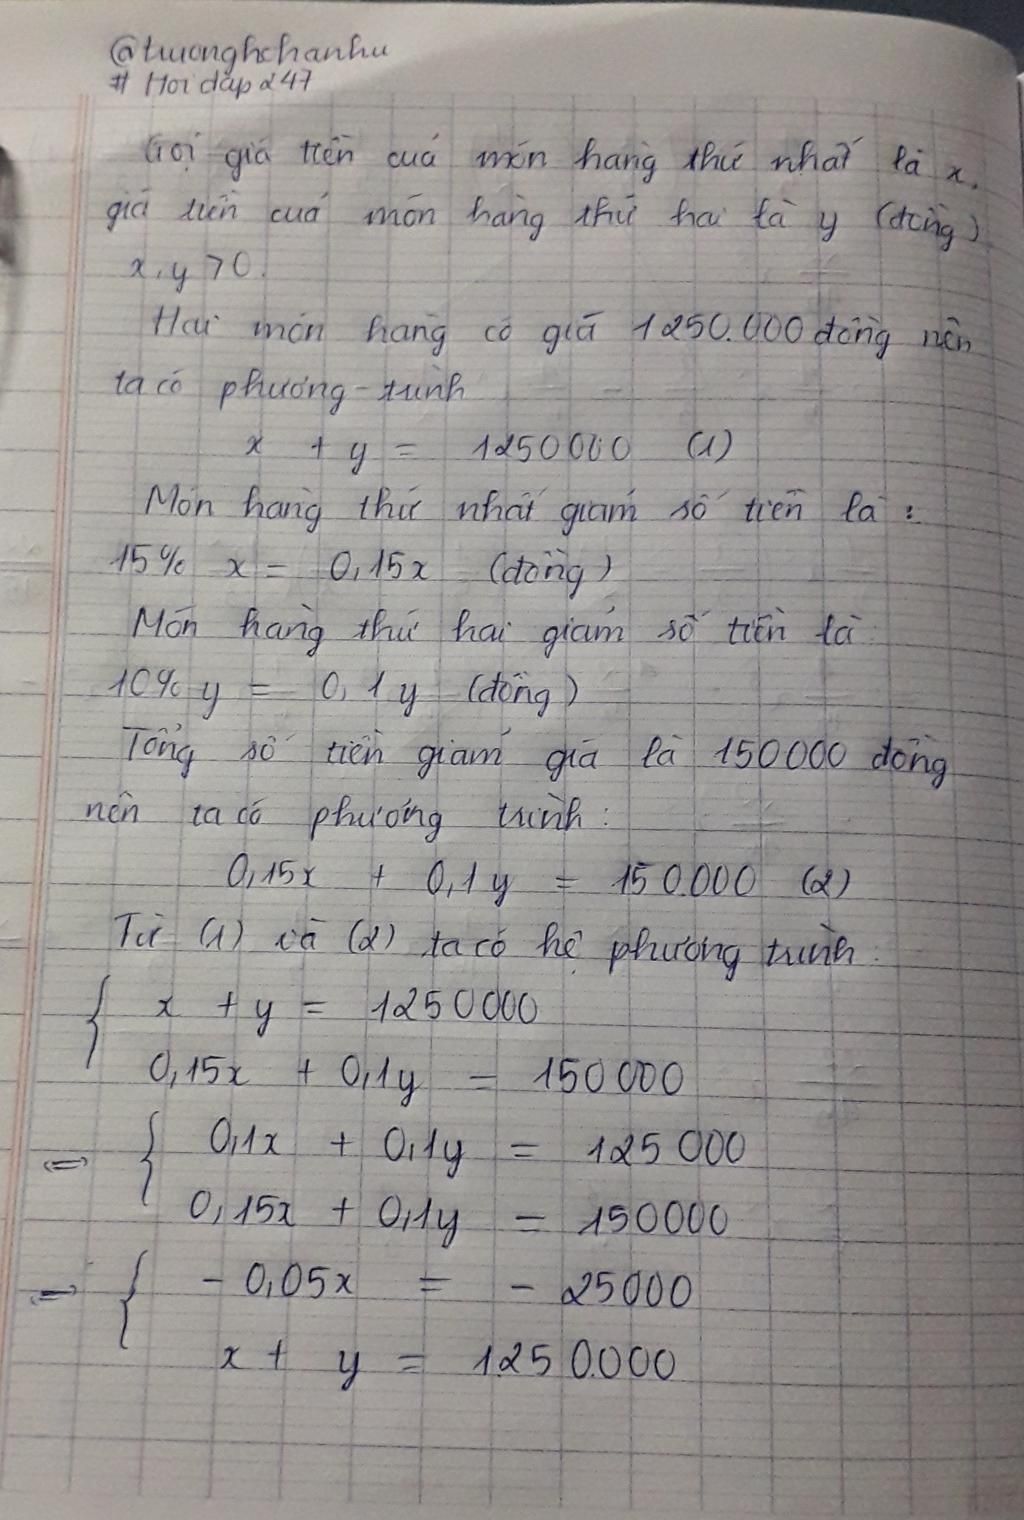 @truonghchanhu
# Hoidap247
Gọi giá tiền của món hàng thứ nhất là x,
giá tiền của món hàng thứ hai là y (đồng)
x, y > 0.
Hai món hàng có giá 1250.000 đồng nên
ta có phương trình
x + y = 1250000 (1)
Món hàng thứ nhất giảm số tiền là :
15% x = 0,15x (đồng)
Món hàng thứ hai giảm số tiền là
10% y = 0,1y (đồng)
Tổng số tiền giảm giá là 150000 đồng
nên ta có phương trình :
0,15x + 0,1y = 150.000 (2)
Từ (1) và (2) ta có hệ phương trình :
{ x + y = 1250000
0,15x + 0,1y = 150000
⇔ { 0,1x + 0,1y = 125000
0,15x + 0,1y = 150000
⇔ { - 0,05x = - 25000
x + y = 1250.000